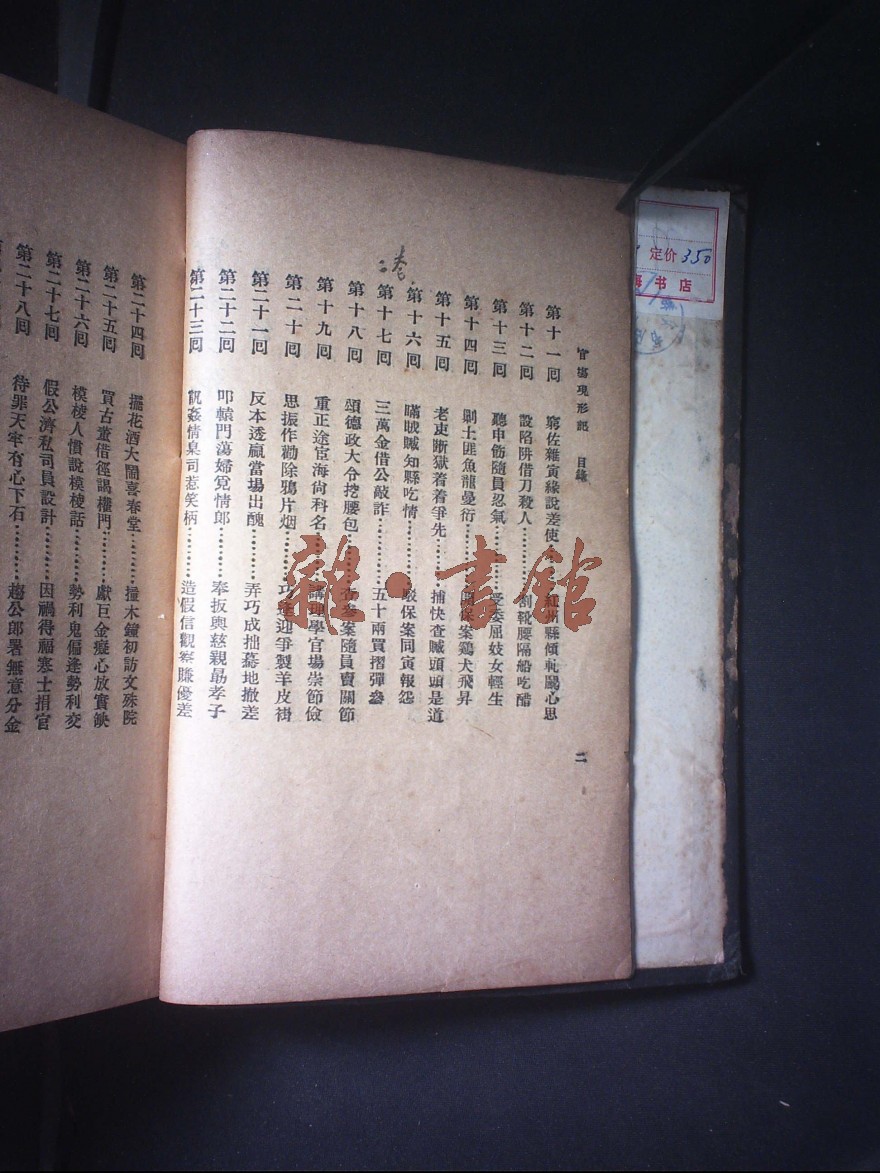 官場現形記 目錄
二
第十一回 窮佐雜夤緣說差使 紅州縣傾軋鬬心思
第十二回 設陷阱借刀殺人 割靴腰隔船吃醋
第十三回 聽申飭隨員忍氣 受委屈妓女輕生
第十四回 剿土匪魚龍曼衍 開保案鷄犬飛昇
第十五回 老吏斷獄着着爭先 捕快查贓頭頭是道
第十六回 瞞賊贓知縣吃情 駁保案同寅報怨
第十七回 三萬金借公敲詐 五十兩買摺彈參
第十八回 頌德政大令挖腰包 查參案隨員賣關節
第十九回 重正途宦海尚科名 講理學官場崇節儉
第二十回 思振作勸除鴉片烟 巧逢迎爭製羊皮褂
第二十一回 反本透贏當場出醜 弄巧成拙驀地撤差
第二十二回 叩轅門蕩婦覓情郎 奉板輿慈親勗孝子
第二十三回 訊姦情臬司惹笑柄 造假信觀察賺優差
二本
第二十四回 擺花酒大鬧喜春堂 撞木鐘初訪文殊院
第二十五回 買古董借徑謁權門 獻巨金癡心放實缺
第二十六回 模棱人慣說模棱話 勢利鬼偏逢勢利交
第二十七回 假公濟私司員設計 因禍得福寒士捐官
第二十八回 待罪天牢有心下石 趨公郎署無意分金
定价 350
海书店
雜·書館